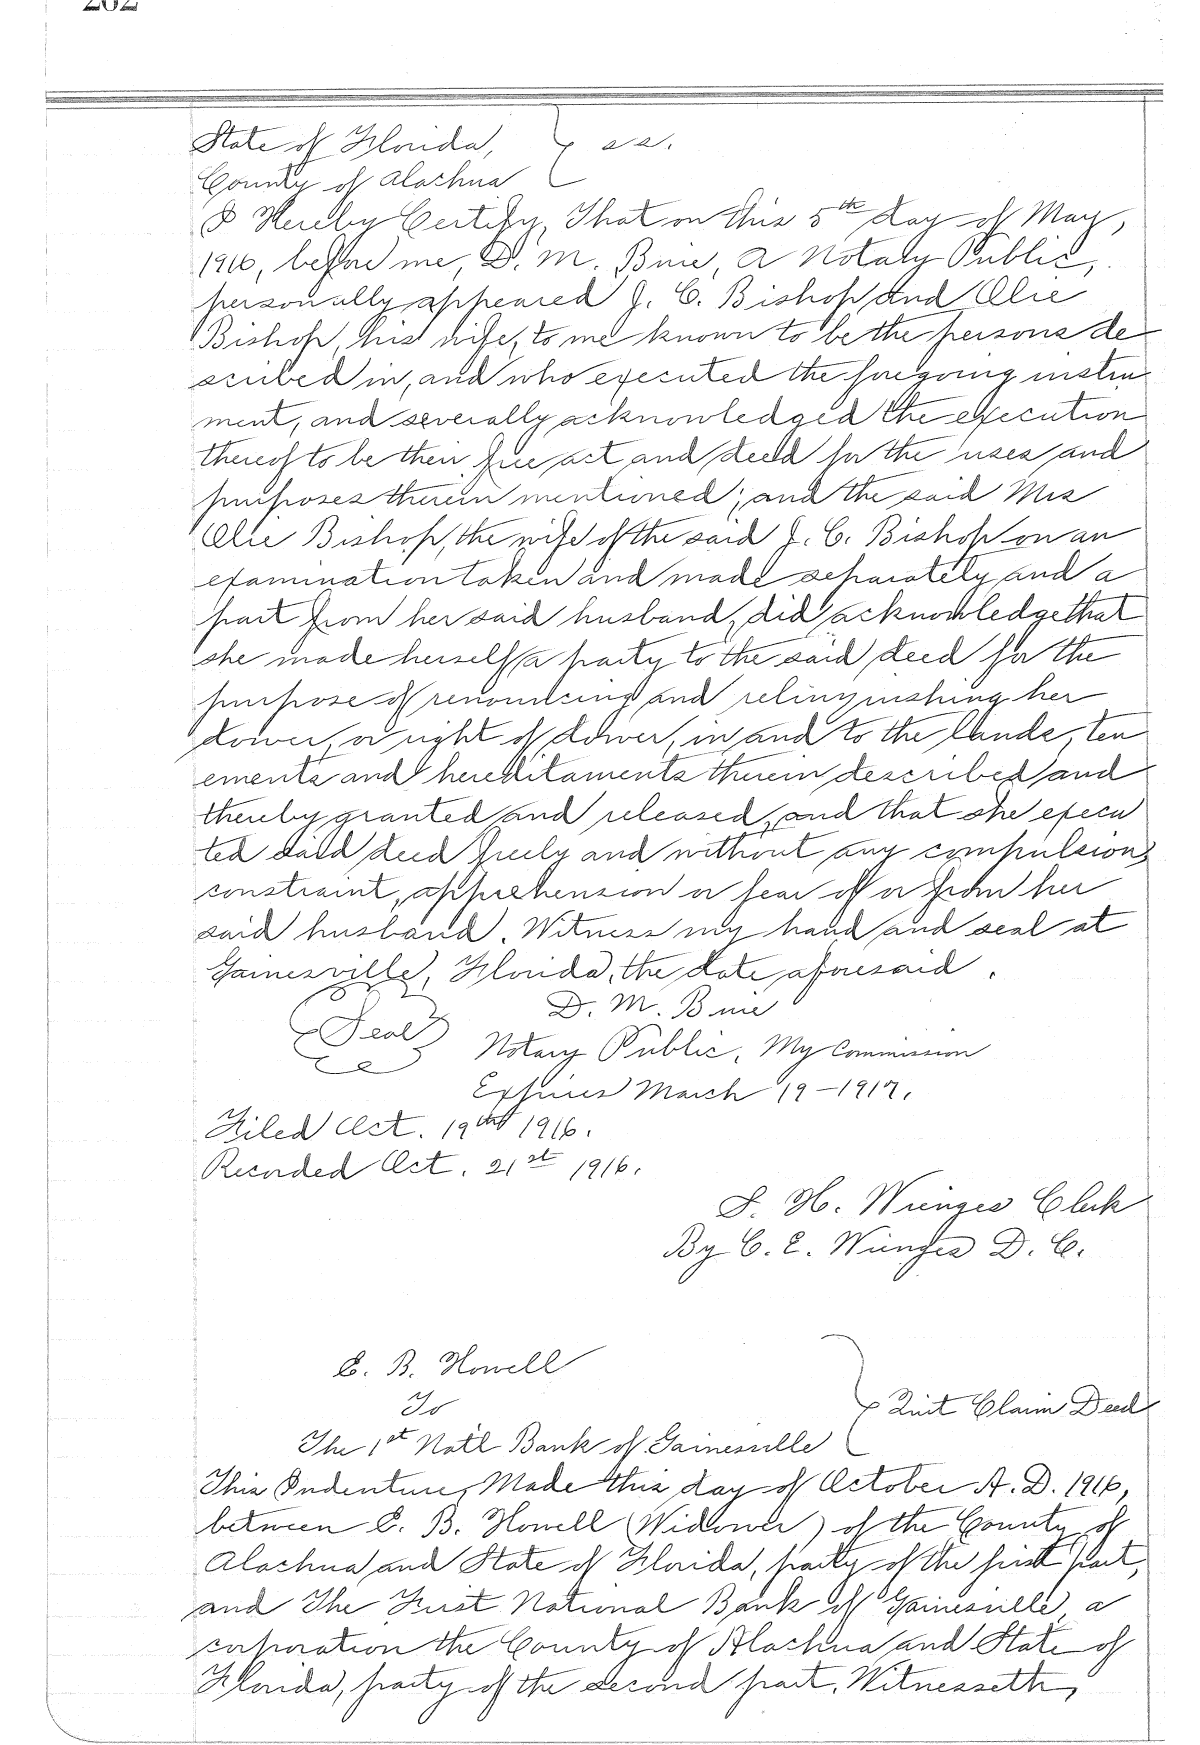 State of Florida,
ss.
County of Alachua
I Hereby Certify, That on this 5th day of May,
1916, before me, D. M. Buie, a Notary Public,
personally appeared J. C. Bishop and Olie
Bishop, his wife, to me known to be the persons de
scribed in, and who executed the foregoing instru
ment, and severally acknowledged the execution
thereof to be their free act and deed for the uses and
purposes therein mentioned; and the said Mrs
Olie Bishop, the wife of the said J. C. Bishop on an
examination taken and made separately and a
part from her said husband, did acknowledge that
she made herself a party to the said deed for the
purpose of renouncing and relinquishing her
dower, or right of dower, in and to the lands, ten
ements and hereditaments therein described and
thereby granted and released, and that she execu
ted said deed freely and without any compulsion,
constraint, apprehension or fear of or from her
said husband. Witness my hand and seal at
Gainesville, Florida, the date aforesaid.
D. M. Buie
Seal
Notary Public, My Commission
Expires March 19-1917.
Filed Oct. 19th 1916.
Recorded Oct. 21st 1916.
S. H. Wienges Clerk
By C. E. Wienges D. C.
E. B. Howell
To
Quit Claim Deed
The 1st Nat'l Bank of Gainesville
This Indenture, Made this day of October A. D. 1916,
between E. B. Howell (Widower) of the County of
Alachua and State of Florida, party of the first part,
and The First National Bank of Gainesville, a
corporation the County of Alachua and State of
Florida, party of the second part, Witnesseth,